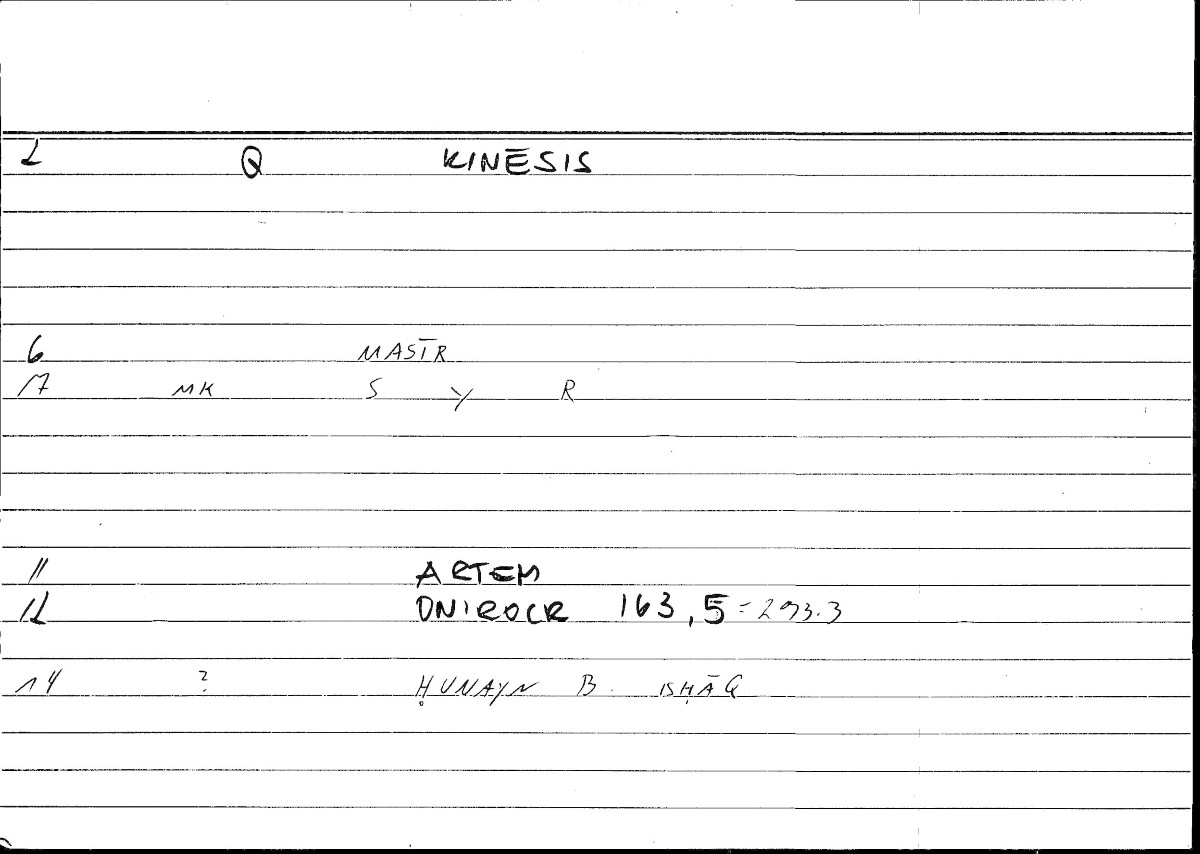 2 Q KINĒSIS
6 MASĪR
7 MK S Y R
11 ARTEM
12 ONIROCR 163,5 = 293.3
14 ? ḤUNAYN B. ISḤĀQ